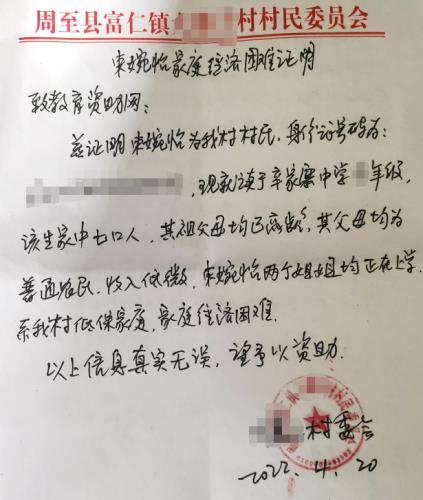 周至县富仁镇 村村民委员会
束婉怡家庭经济困难证明
致教育资助网：
兹证明束婉怡为我村村民，身份证号码为：
，现就读于辛家寨中学 年级，
该生家中七口人，其祖父母均已高龄，其父母均为
普通农民，收入低微，束婉怡两个姐姐均正在上学，
系我村低保家庭，家庭经济困难。
以上信息真实无误，望予以资助。
村委会
2022.4.20